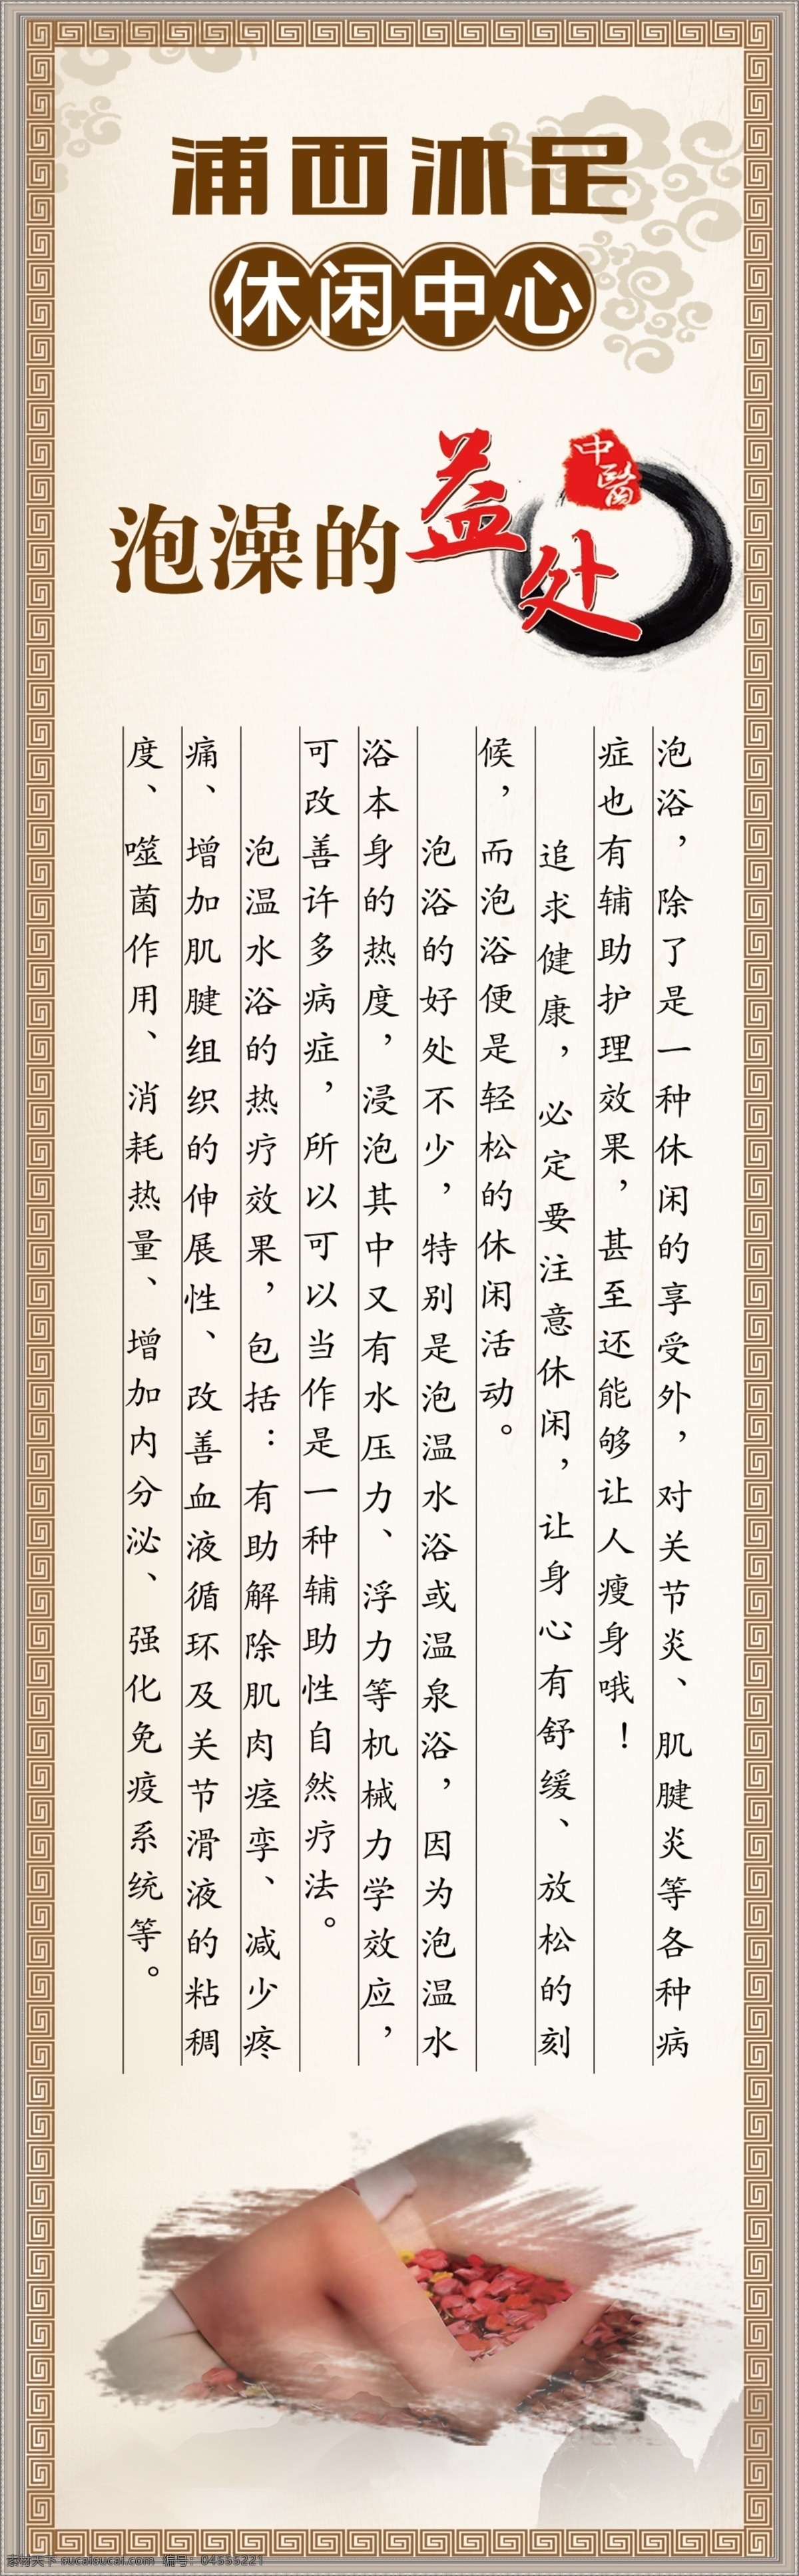 浦西沐足
休闲中心
泡澡的益处
中醫
泡浴，除了是一种休闲的享受外，对关节炎、肌腱炎等各种病
症也有辅助护理效果，甚至还能够让人瘦身哦！
追求健康，必定要注意休闲，让身心有舒缓、放松的刻
候，而泡浴便是轻松的休闲活动。
泡浴的好处不少，特别是泡温水浴或温泉浴，因为泡温水
浴本身的热度，浸泡其中又有水压力、浮力等机械力学效应，
可改善许多病症，所以可以当作是一种辅助性自然疗法。
泡温水浴的热疗效果，包括：有助解除肌肉痉挛、减少疼
痛、增加肌腱组织的伸展性、改善血液循环及关节滑液的粘稠
度、噬菌作用、消耗热量、增加内分泌、强化免疫系统等。
素材天下 sucaisucai.com 编号：04555221